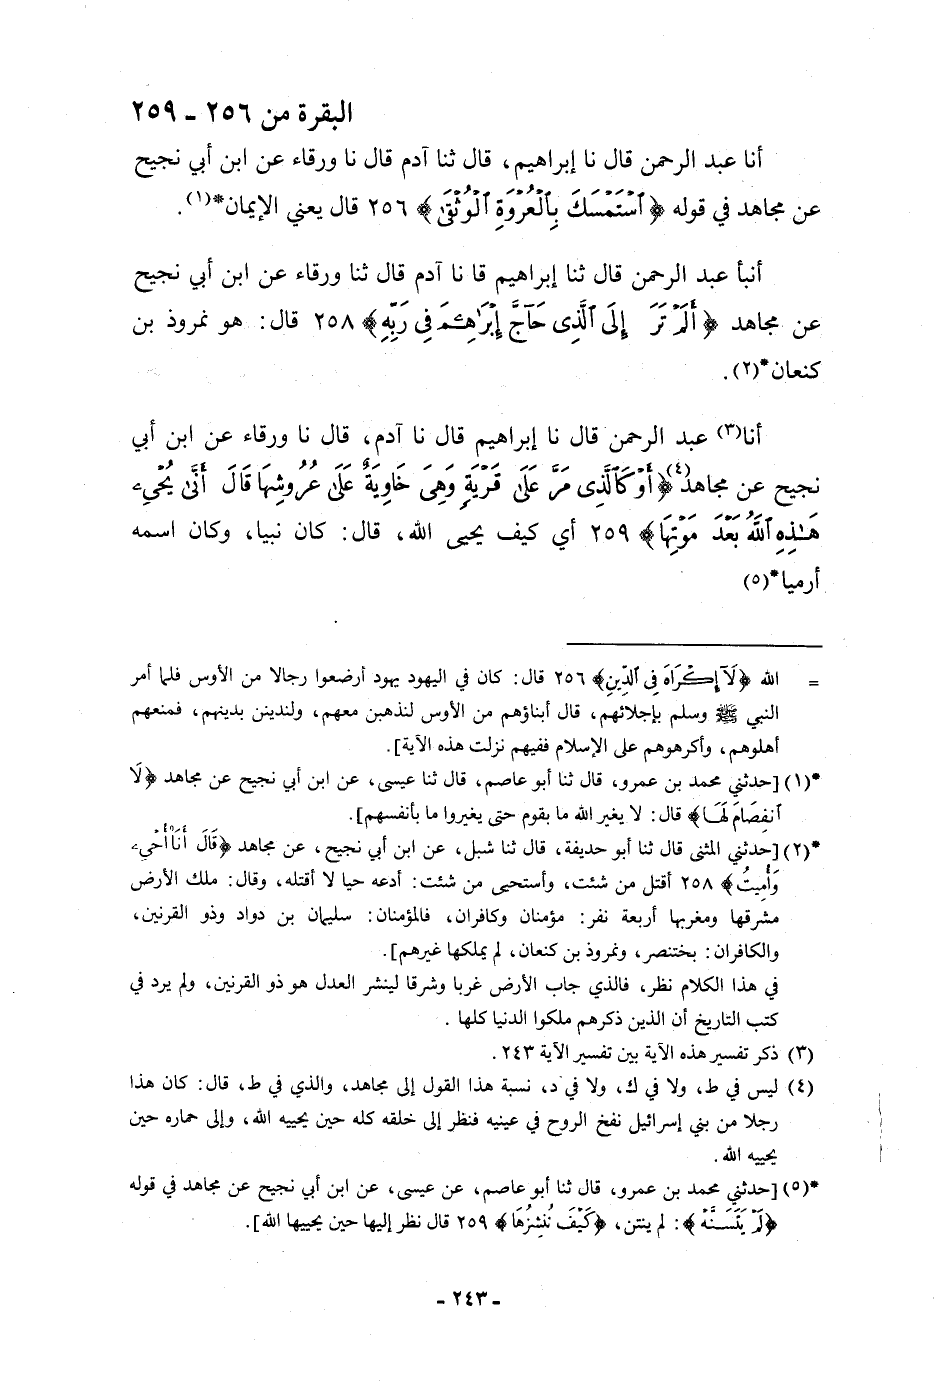 البقرة من ٢٥٦ - ٢٥٩
أنا عبد الرحمن قال نا إبراهيم، قال ثنا آدم قال نا ورقاء عن ابن أبي نجيح
عن مجاهد في قوله ﴿ ٱسۡتَمۡسَكَ بِٱلۡعُرۡوَةِ ٱلۡوُثۡقَىٰ ﴾ ٢٥٦ قال يعني الإيمان*(١).
أنبأ عبد الرحمن قال ثنا إبراهيم قا نا آدم قال ثنا ورقاء عن ابن أبي نجيح
عن مجاهد ﴿ أَلَمۡ تَرَ إِلَى ٱلَّذِى حَآجَّ إِبۡرَٰهِـۧمَ فِى رَبِّهِۦ ﴾ ٢٥٨ قال: هو نمروذ بن
كنعان*(٢).
أنا(٣) عبد الرحمن قال نا إبراهيم قال نا آدم، قال نا ورقاء عن ابن أبي
نجيح عن مجاهد(٤) ﴿ أَوۡ كَٱلَّذِى مَرَّ عَلَىٰ قَرۡيَةٖ وَهِىَ خَاوِيَةٌ عَلَىٰ عُرُوشِهَا قَالَ أَنَّىٰ يُحۡىِۦ
هَـٰذِهِ ٱللَّهُ بَعۡدَ مَوۡتِهَا ﴾ ٢٥٩ أي كيف يحيى الله، قال: كان نبيا، وكان اسمه
أرميا*(٥)
= الله ﴿ لَآ إِكۡرَاهَ فِى ٱلدِّينِ ﴾ ٢٥٦ قال: كان في اليهود يهود أرضعوا رجالا من الأوس فلما أمر
النبي ﷺ وسلم بإجلائهم، قال أبناؤهم من الأوس لنذهبن معهم، ولندينن بدينهم، فمنعهم
أهلوهم، وأكرهوهم على الإسلام ففيهم نزلت هذه الآية].
*(١) [حدثني محمد بن عمرو، قال ثنا أبو عاصم، قال ثنا عيسى، عن ابن أبي نجيح عن مجاهد ﴿ لَا
ٱنفِصَامَ لَهَا ﴾ قال: لا يغير الله ما بقوم حتى يغيروا ما بأنفسهم].
*(٢) [حدثني المثنى قال ثنا أبو حذيفة، قال ثنا شبل، عن ابن أبي نجيح، عن مجاهد ﴿ قَالَ أَنَا۠ أُحۡىِۦ
وَأُمِيتُ ﴾ ٢٥٨ أقتل من شئت، وأستحيى من شئت: أدعه حيا لا أقتله، وقال: ملك الأرض
مشرقها ومغربها أربعة نفر: مؤمنان وكافران، فالمؤمنان: سليمان بن دواد وذو القرنين،
والكافران: بختنصر، ونمروذ بن كنعان، لم يملكها غيرهم].
في هذا الكلام نظر، فالذي جاب الأرض غربا وشرقا لينشر العدل هو ذو القرنين، ولم يرد في
كتب التاريخ أن الذين ذكرهم ملكوا الدنيا كلها .
(٣) ذكر تفسير هذه الآية بين تفسير الآية ٢٤٣.
(٤) ليس في ط، ولا في ك، ولا في د، نسبة هذا القول إلى مجاهد، والذي في ط، قال: كان هذا
رجلا من بني إسرائيل نفخ الروح في عينيه فنظر إلى خلقه كله حين يحييه الله، وإلى حماره حين
يحييه الله .
*(٥) [حدثني محمد بن عمرو، قال ثنا أبو عاصم، عن عيسى، عن ابن أبي نجيح عن مجاهد في قوله
﴿ لَمۡ يَتَسَنَّهۡ ﴾: لم ينتن، ﴿ كَيۡفَ نُنشِزُهَا ﴾ ٢٥٩ قال نظر إليها حين يحييها الله].
- ٢٤٣ -